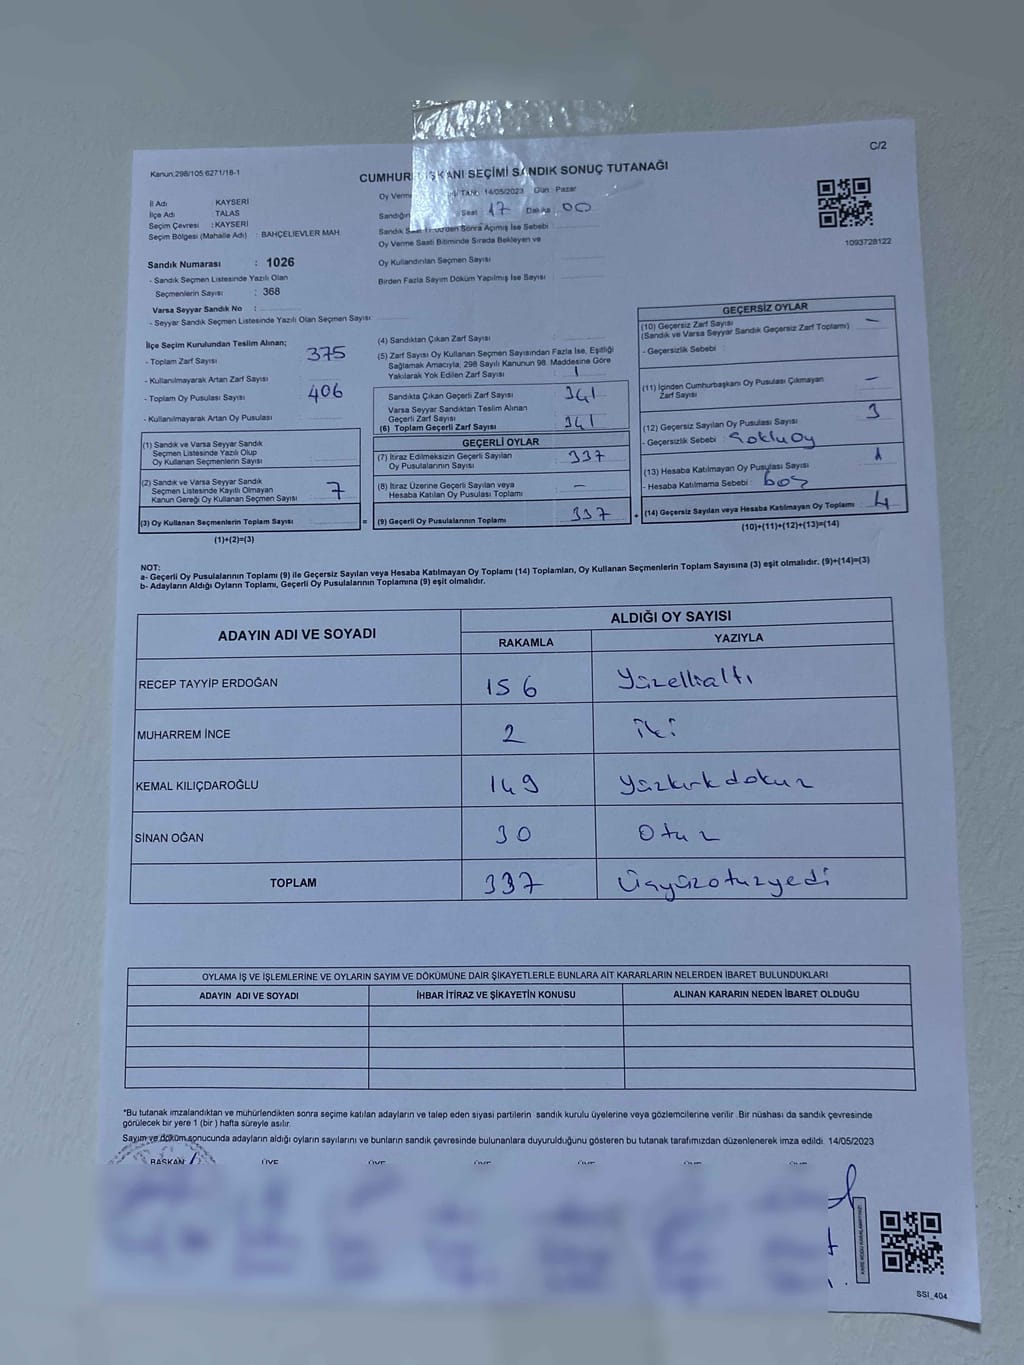 C/2
Kanun.298/105.6271/18-1
CUMHUR KANI SEÇİMİ SANDIK SONUÇ TUTANAĞI
Oy Verm TARİH 14/05/2023 Gün : Pazar
İl Adı : KAYSERİ
İlçe Adı : TALAS
Seçim Çevresi : KAYSERİ
Seçim Bölgesi (Mahalle Adı) : BAHÇELİEVLER MAH
Sandığın Saat 17 Dakika 00
Sandık S den Sonra Açımış İse Sebebi
Oy Verme Saati Bitiminde Sırada Bekleyen ve
Oy Kullandırılan Seçmen Sayısı
Birden Fazla Sayım Döküm Yapılmış İse Sayısı
1093728122
Sandık Numarası : 1026
- Sandık Seçmen Listesinde Yazılı Olan
Seçmenlerin Sayısı : 368
Varsa Seyyar Sandık No :
- Seyyar Sandık Seçmen Listesinde Yazılı Olan Seçmen Sayısı:
İlçe Seçim Kurulundan Teslim Alınan;
- Toplam Zarf Sayısı 375
- Kullanılmayarak Artan Zarf Sayısı
- Toplam Oy Pusulası Sayısı 406
- Kullanılmayarak Artan Oy Pusulası
(1) Sandık ve Varsa Seyyar Sandık
Seçmen Listesinde Yazılı Olup
Oy Kullanan Seçmenlerin Sayısı
(2) Sandık ve Varsa Seyyar Sandık
Seçmen Listesinde Kayıtlı Olmayan
Kanun Gereği Oy Kullanan Seçmen Sayısı 7
(3) Oy Kullanan Seçmenlerin Toplam Sayısı
(1)+(2)=(3)
(4) Sandıktan Çıkan Zarf Sayısı
(5) Zarf Sayısı Oy Kullanan Seçmen Sayısından Fazla İse, Eşitliği
Sağlamak Amacıyla, 298 Sayılı Kanunun 98. Maddesine Göre
Yakılarak Yok Edilen Zarf Sayısı 1
Sandıkta Çıkan Geçerli Zarf Sayısı 341
Varsa Seyyar Sandıktan Teslim Alınan
Geçerli Zarf Sayısı
(6) Toplam Geçerli Zarf Sayısı 341
GEÇERLİ OYLAR
(7) İtiraz Edilmeksizin Geçerli Sayılan
Oy Pusulalarının Sayısı 337
(8) İtiraz Üzerine Geçerli Sayılan veya
Hesaba Katılan Oy Pusulası Toplamı –
= (9) Geçerli Oy Pusulalarının Toplamı 337
GEÇERSİZ OYLAR
(10) Geçersiz Zarf Sayısı –
(Sandık ve Varsa Seyyar Sandık Geçersiz Zarf Toplamı)
- Geçersizlik Sebebi :
(11) İçinden Cumhurbaşkanı Oy Pusulası Çıkmayan
Zarf Sayısı –
(12) Geçersiz Sayılan Oy Pusulası Sayısı 3
- Geçersizlik Sebebi :
(13) Hesaba Katılmayan Oy Pusulası Sayısı 1
- Hesaba Katılmama Sebebi : boş
+ (14) Geçersiz Sayılan veya Hesaba Katılmayan Oy Toplamı 4
(10)+(11)+(12)+(13)=(14)
NOT:
a- Geçerli Oy Pusulalarının Toplamı (9) ile Geçersiz Sayılan veya Hesaba Katılmayan Oy Toplamı (14) Toplamları, Oy Kullanan Seçmenlerin Toplam Sayısına (3) eşit olmalıdır. (9)+(14)=(3)
b- Adayların Aldığı Oyların Toplamı, Geçerli Oy Pusulalarının Toplamına (9) eşit olmalıdır.
ADAYIN ADI VE SOYADI ALDIĞI OY SAYISI
RAKAMLA YAZIYLA
RECEP TAYYİP ERDOĞAN 156 Yüzellialtı
MUHARREM İNCE 2 iki
KEMAL KILIÇDAROĞLU 149 Yüzkırkdokuz
SİNAN OĞAN 30 Otuz
TOPLAM 337 Üçyüzotuzyedi
OYLAMA İŞ VE İŞLEMLERİNE VE OYLARIN SAYIM VE DÖKÜMÜNE DAİR ŞİKAYETLERLE BUNLARA AİT KARARLARIN NELERDEN İBARET BULUNDUKLARI
ADAYIN ADI VE SOYADI İHBAR İTİRAZ VE ŞİKAYETİN KONUSU ALINAN KARARIN NEDEN İBARET OLDUĞU
*Bu tutanak imzalandıktan ve mühürlendikten sonra seçime katılan adayların ve talep eden siyasi partilerin sandık kurulu üyelerine veya gözlemcilerine verilir .Bir nüshası da sandık çevresinde
görülecek bir yere 1 (bir ) hafta süreyle asılır.
Sayım ve döküm sonucunda adayların aldığı oyların sayılarını ve bunların sandık çevresinde bulunanlara duyurulduğunu gösteren bu tutanak tarafımızdan düzenlenerek imza edildi. 14/05/2023
BAŞKAN ÜYE ÜYE ÜYE ÜYE ÜYE ÜYE
SSI_404